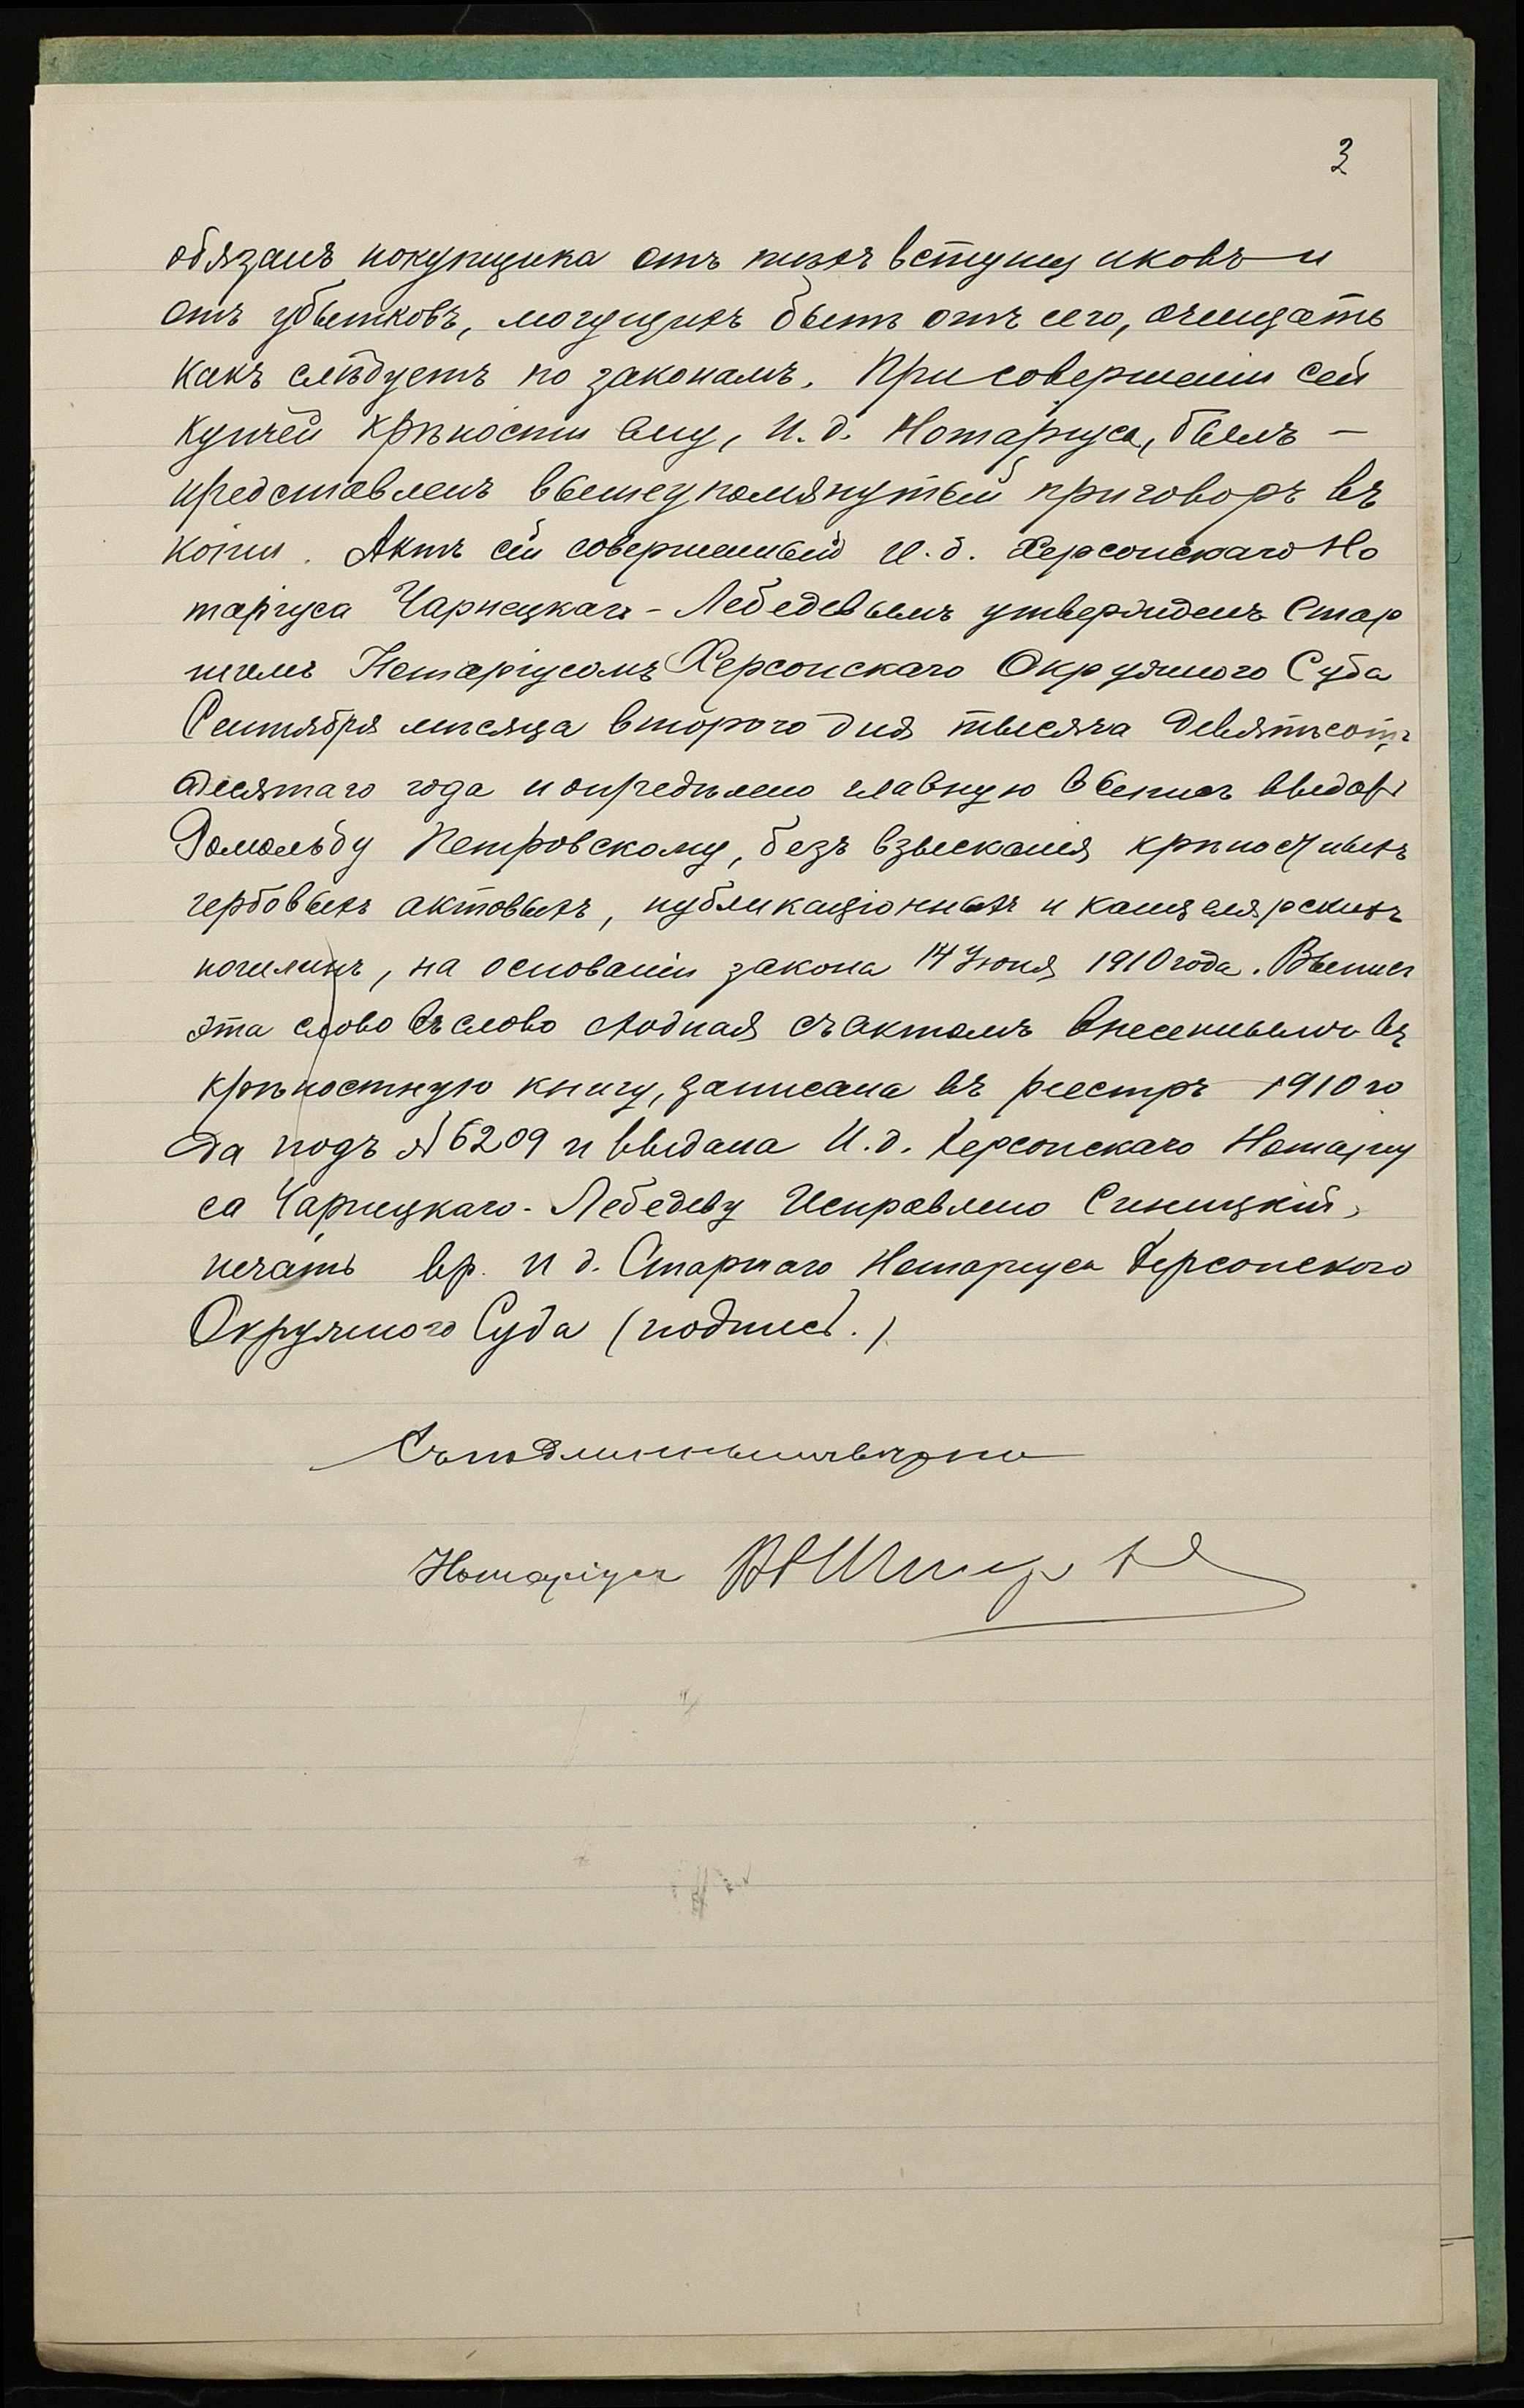 3
обязанъ покупщика отъ тѣхъ вступщиковъ и
отъ убытковъ, могущихъ быть отъ сего, очищать
какъ слѣдуетъ по законамъ. При совершеніи сей
купчей крѣпости ему, И. д. Нотаріуса, былъ —
представленъ вышеупомянутый приговоръ въ
копіи. Актъ сей совершенный И. д. Херсонскаго Но
таріуса Чарнецкаго-Лебедевымъ утвержденъ Стар
шимъ Нотаріусомъ Херсонскаго Окружного Суда
Сентября мѣсяца второго дня тысяча девятьсотъ
десятаго года и опредѣлено главную выпись выдать
Ромольду Петровскому, безъ взысканія крѣпостныхъ
гербовыхъ актовыхъ, публикаціонныхъ и канцелярскихъ
пошлинъ, на основаніи закона 14 Іюня 1910 года. Выпись
эта слово въ слово сходная съ актомъ внесеннымъ въ
крѣпостную книгу, записана въ реестръ 1910 го
да подъ № 6209 и выдана И. д. Херсонскаго Нотаріу
са Чарнецкаго-Лебедеву Исправлено Синицкій,
печать вр. и д. Старшаго Нотаріуса Херсонскаго
Окружного Суда (подпись.)
Съ подлиннымъ вѣрно
Нотаріусъ